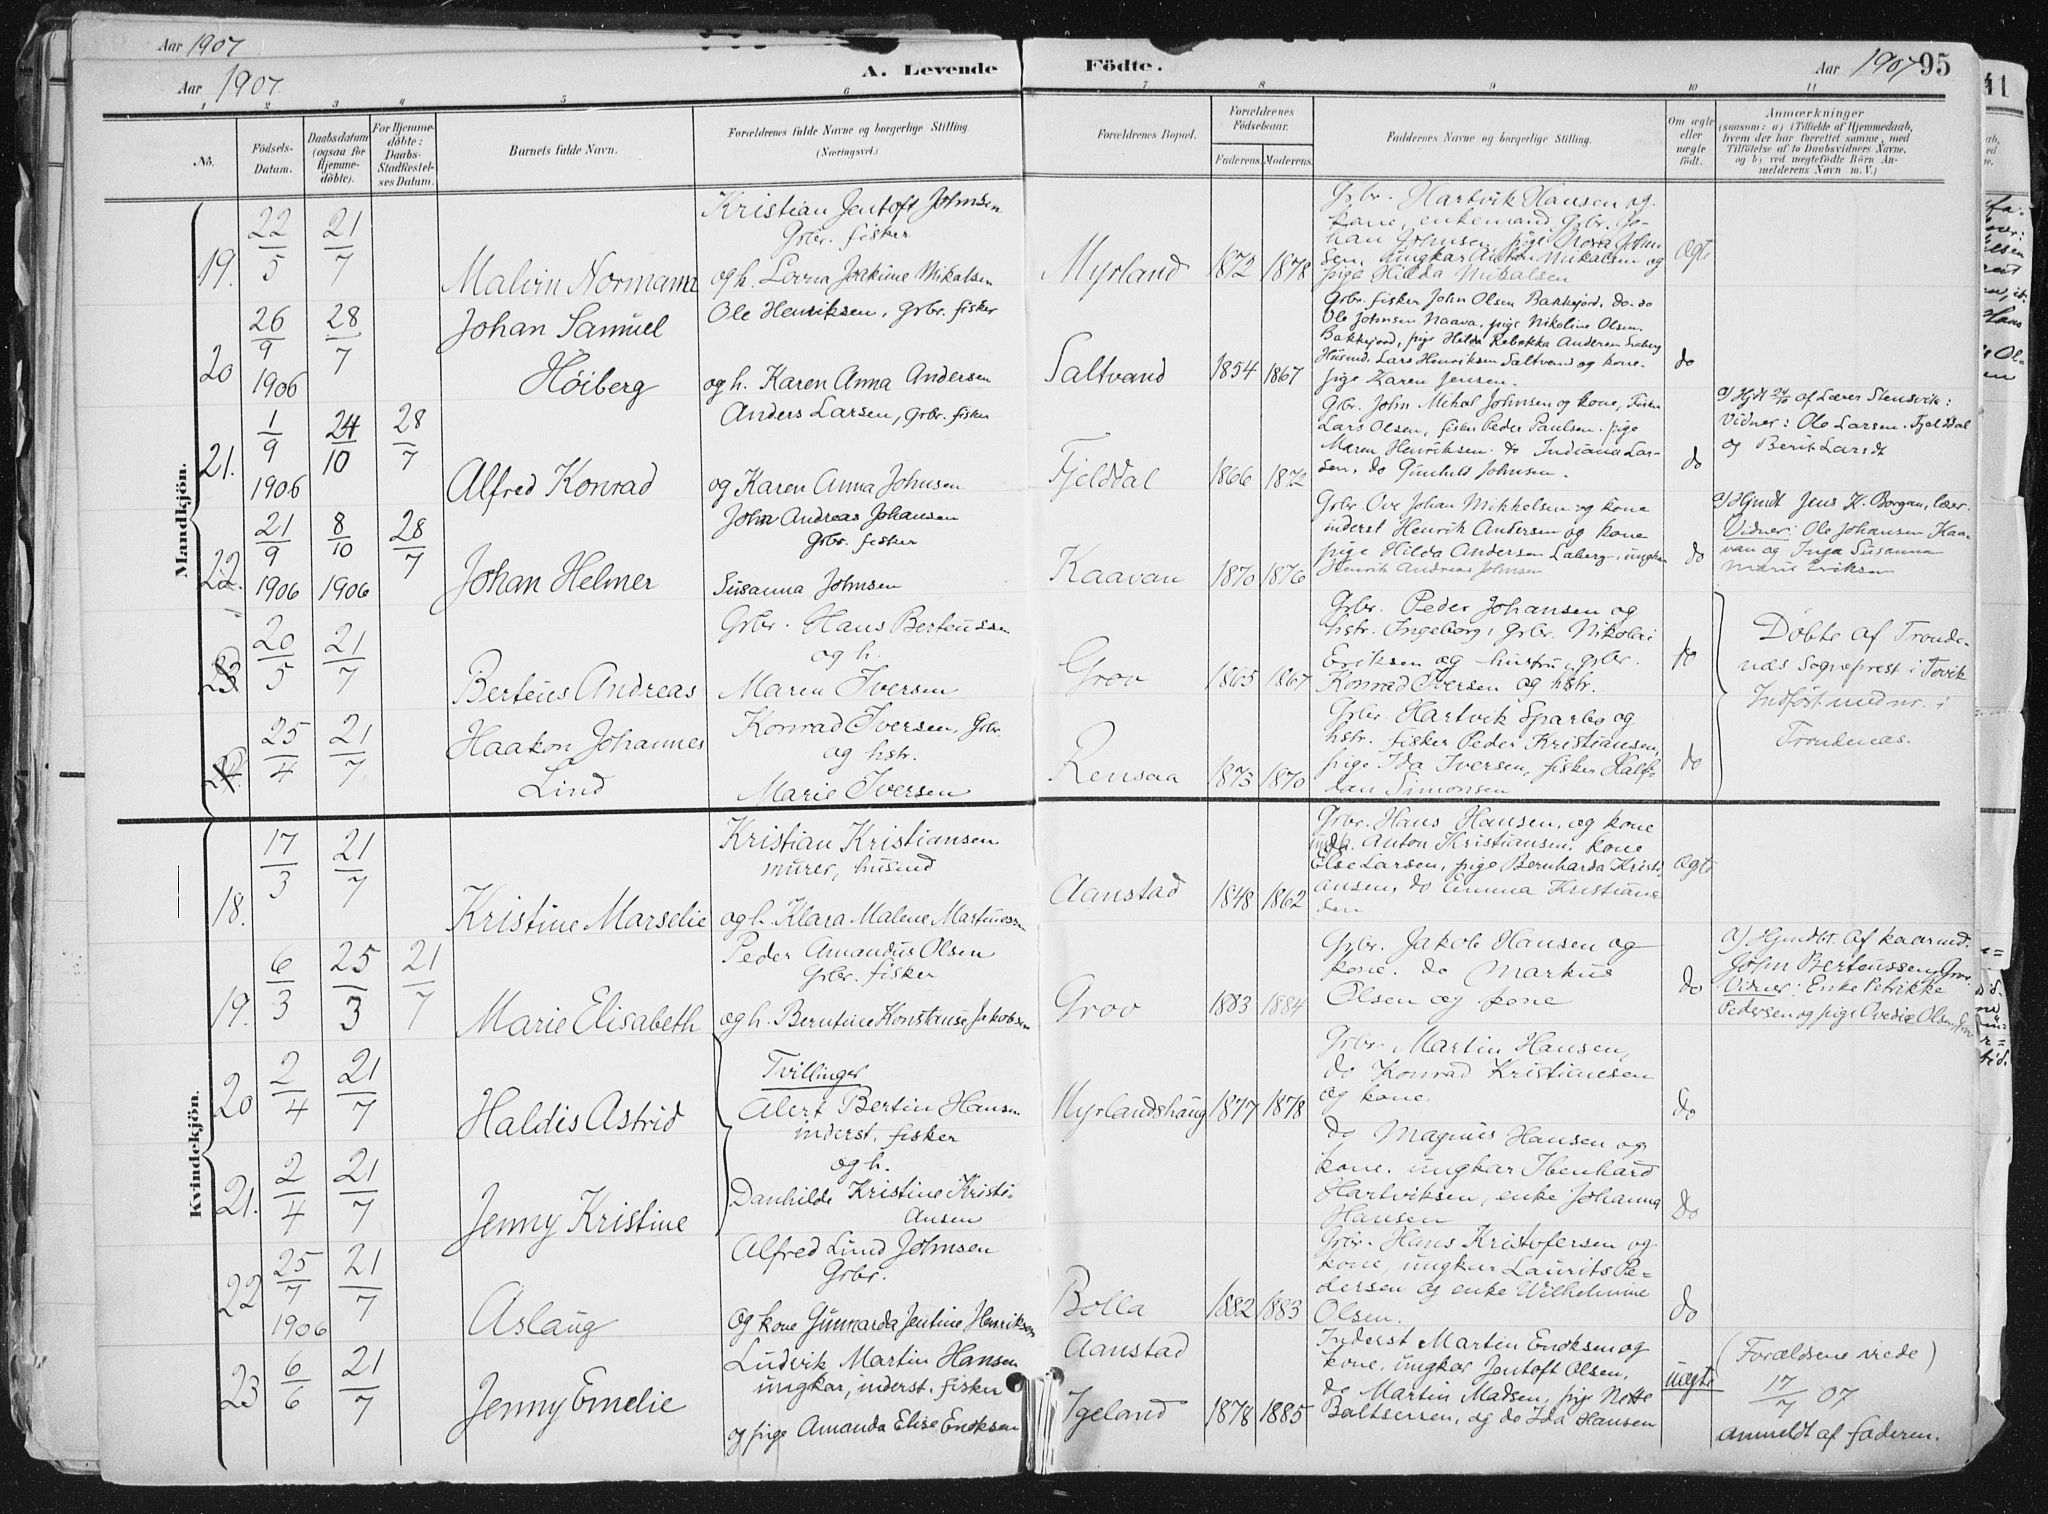 Aar 1907
Aar 1907
A. Levende
Födte.
Aar 1907
95
11
1 2 3 4 5 6 7 8 9 10 11
No.
Födsels-
Datum.
Daabsdatum
(ogsaa for
Hjemme-
döbte).
For Hjemme-
döbte:
Daabs-
Stadfæstel-
ses Datum.
Barnets fulde Navn.
Forældrenes fulde Navne og borgerlige Stilling.
(Næringsvei.)
Forældrenes Bopæl.
Forældrenes
Födselsaar.
Faderens. Moderens.
Faddernes Navne og borgerlige Stilling.
Om ægte
eller
uægte
födt.
Anmærkninger
(saasom: a) i Tilfælde af Hjemmedaab,
hvem der har forrettet samme, med
Tilföielse af to Daabsvidners Navne.
og b) ved uægtefödte Börn An-
melderens Navn m. V.)
Mandkjön.
19.
22/5
21/7
Malvin Normann
Kristian Jentoft Johnsen
Grbr. fisker
og h. Lovna Joakime Mikalsen
Myrland
1872 1878
Grbr. Hartvik Hansen og
kone, enkemand, Grbr. Jo-
han Johnsen, pige Nora John-
sen, ungkar Anton Mikalsen og
pige Hilda Mikalsen
Ægte
20
26/9
1906
28/7
Johan Samuel
Höiberg
Ole Henriksen, Grbr. fisker
og h. Karen Anna Andersen
Saltvand
1854 1867
Grbr. fisker John Olsen Bakkejord, do. do
Ole Johnsen Naava, pige Nikoline Olsen
Bakkejord, pige Helda Rebekka Andersen
Husmd. Lars Henriksen Saltvand og kone
pige Karen Jensen.
do
21.
1/9
1906
24/10
28/7
Alfred Konrad
Anders Larsen, Grbr. fisker
og Karen Anna Johnsen
Fjelddal
1866 1872
Grbr. John Mikal Johnsen og kone, Fisker
Lars Olsen, fisker Peder Paulsen, pige
Maren Henriksen. do Indiana Lar-
sen, do Gunhild Johnsen.
do
a) Hjdt 24/10 af Lærer Stensvik:
Vidner: Ole Larsen. Fjelddal
og Berit Larsdt
22.
21/9
1906
8/10
1906
28/7
Johan Helmer
John Andreas Johansen
Grbr. fisker
Susanna Johnsen
Kaavan
1870 1876
Grbr. Ove Johan Mikkelsen og kone
inderst Henrik Andersen og kone
pige Hilda Andersen Laberg, ungkar
Henrik Andreas Johnsen
do
a) Hjmdt Jens K. Borgan, lær.
Vidner: Ole Johansen Kaa-
van og Inga Susanna
Marie Eriksen
23
20/5
21/7
Berteus Andreas
Grbr. Hans Berteussen
og h.
Maren Iversen
Grov
1865 1867
Grbr. Peder Johansen og
hstr. Ingeborg, grbr. Nikolai
Eriksen og hustru, grbr.
Konrad Iversen og hstr.
do
Döbte af Tronde-
næs Sogneprest i Tovik
Indfört med nr. i
Trondenæs.
24.
25/4
21/7
Haakon Johannes
Lind
Konrad Iversen, Grbr.
og hstr.
Marie Iversen
Rensaa
1873 1870
Grbr. Hartvik Sparbo og
hstr. fisker Peder Kristiansen,
pige Ida Iversen, fisker Half-
dan Simonsen
do
Kvindekjön.
18.
17/3
21/7
Kristine Marselie
Kristian Kristiansen
murer, husmd
og h. Klara Malene Martinessen
Aanstad
1848 1862
Grbr. Hans Hansen, og kone
indr. Anton Kristiansen, kone
Else Larsen, pige Bernharda Kristi-
ansen, do Emma Kristian-
sen
Ægte
19.
6/3
25/3
21/7
Marie Elisabeth
Peder Amandus Olsen
Grbr. fisker
og h. Berntine Konstanse Jakobsen
Grov
1883 1884
Grbr. Jakob Hansen og
kone. do Markus
Olsen og kone
do
a) Hjmdbt. af kaarmd.
John Berteussen, Grov.
Vidner: Enke Petrikke
Pedersen og pige Ovedie Olsen, Grov
20
2/4
21/7
Haldis Astrid
Tvillinger
Alert Bertin Hansen
inderst, fisker
og h.
Danhilde Kristine Kristi-
ansen
Myrlandshaug
1877 1878
Grbr. Martin Hansen,
do Konrad Kristiansen
og kone.
do
21.
2/4
21/7
Jenny Kristine
do Magnus Hansen og
kone. ungkar Ibenhard
Hartviksen, enke Johanna
Hansen
Do
22
25/7
1906
21/7
Aslaug
Alfred Lind Johnsen
Grbr.
og kone Gunnarda Jentine Henriksen
Bolla
1882 1883
Grbr. Hans Kristofersen og
kone, ungkar Laurits Pe=
dersen og enke Wilhelmine
Olsen.
do
23
6/6
21/7
Jenny Emelie
Ludvik Martin Hansen
ungkar, inderst. fisker
og pige Amanda Elise Enoksen
Aanstad
Igeland
1878 1885
Inderst Martin Enoksen og
kone, ungkar Jentoft Olsen,
do Martin Madsen, pige Nette
Baltsersen, og do Ida Hansen
uægte
(Forældrene viede)
17/7 07
anmeldt af faderen.